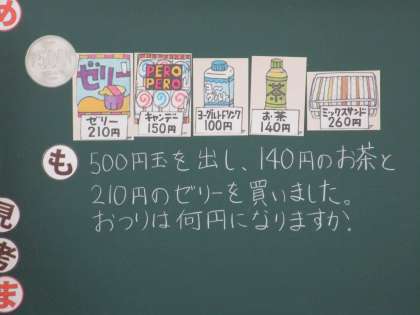 め
500
ゼリー
ゼリー
210円
PERO
PERO
キャンデー
150円
ヨーグルトドリンク
100円
茶
お茶
140円
ミックスサンド
260円
も
500円玉を出し、140円のお茶と
210円のゼリーを買いました。
おつりは何円になりますか。
見
考
ま